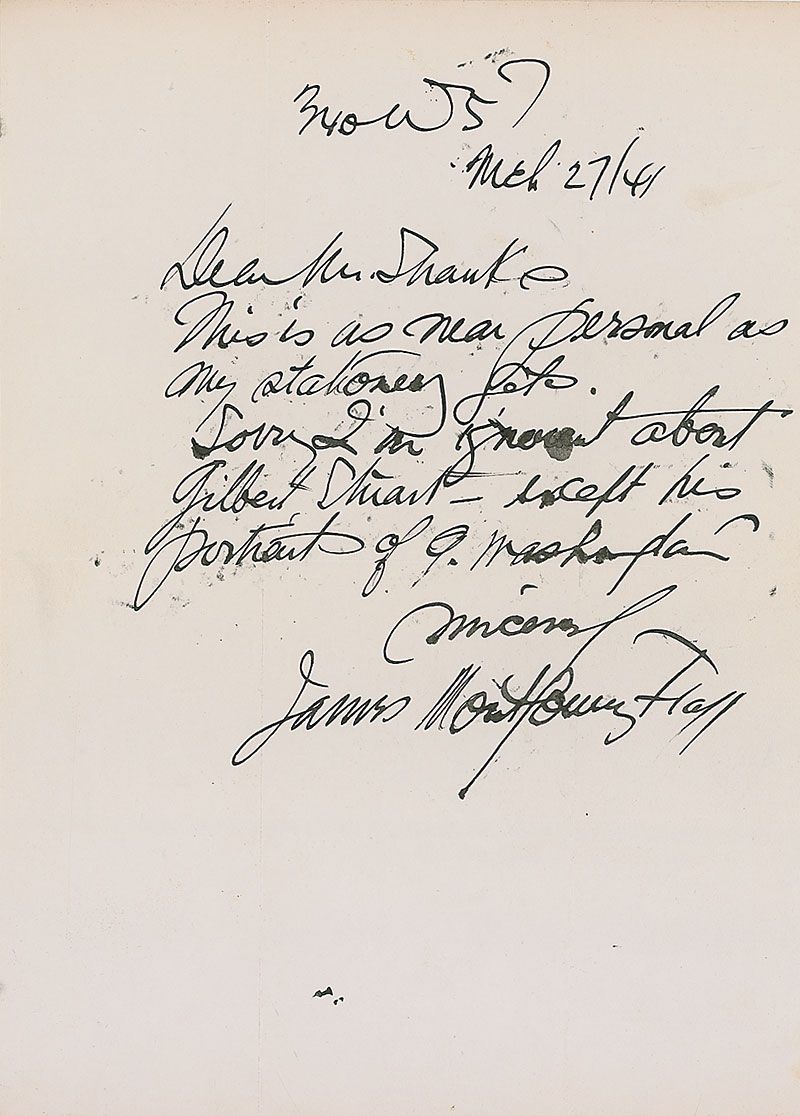 340 W 57
Mch 27/41
Dear Mr. Shanks
This is as near personal as
my stationery gets.
Sorry I'm ignorant about
Gilbert Stuart — except his
portraits of G. Washington
Sincerely
James Montgomery Flagg